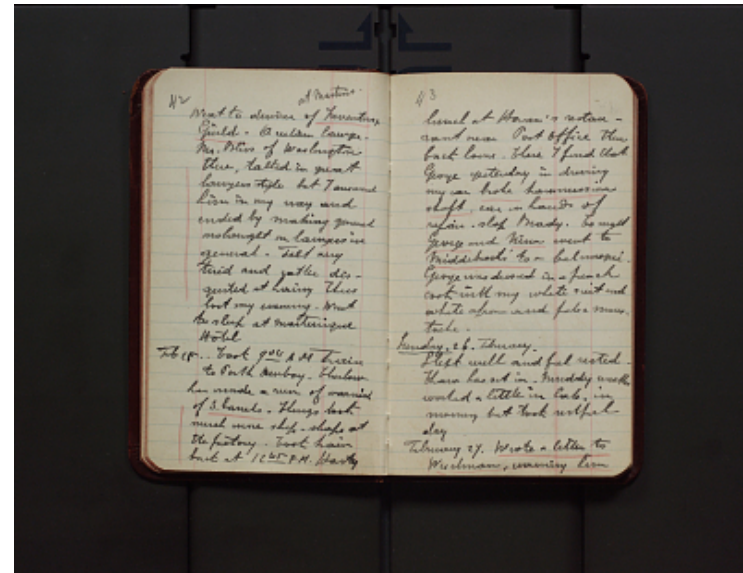 42
at Martins.
Went to dinner of Inventors
Guild. Quilian lawyer
Mr. Bliss of Washington
there, talked in great
lawyers style but I answered
him in my way and
ended by making general
onslaught on lawyers in
general. Felt very
tired and rather dis-
gusted at having thus
lost my evening. Went
to sleep at Martinique
Hotel
Feb 25. Took 9 A.M. train
to Perth Amboy. Thurlow
has made a run of varnish
of 3 barrels. Things look
much more ship-shape at
the factory. Took train
back at 12 45 P.M. Hasty
43
lunch at Haan's restau-
rant near Post Office then
back home. There I find that
George yesterday in driving
my car broke transmission
shaft, car in hands of
repair-shop Brady. To night
George and Nina went to
Middlebrooks to a bal masqué.
George was dressed in a french
cook with my white suit and
white apron and false mous-
tache.
Sunday, 26. February.
Slept well and feel rested.
Thaw has set in. Muddy weather
worked a little in lab. in
morning but took restful
day
February 27. Wrote a letter to
Weidman, warning him